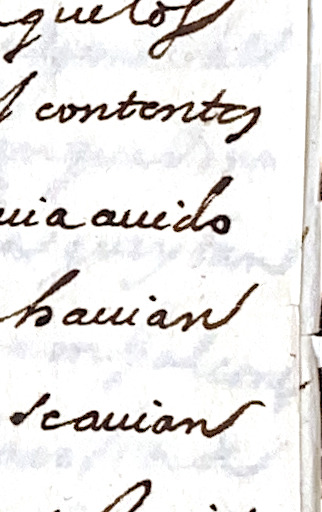 quetos
contentos
uia auido
hauian
scauian